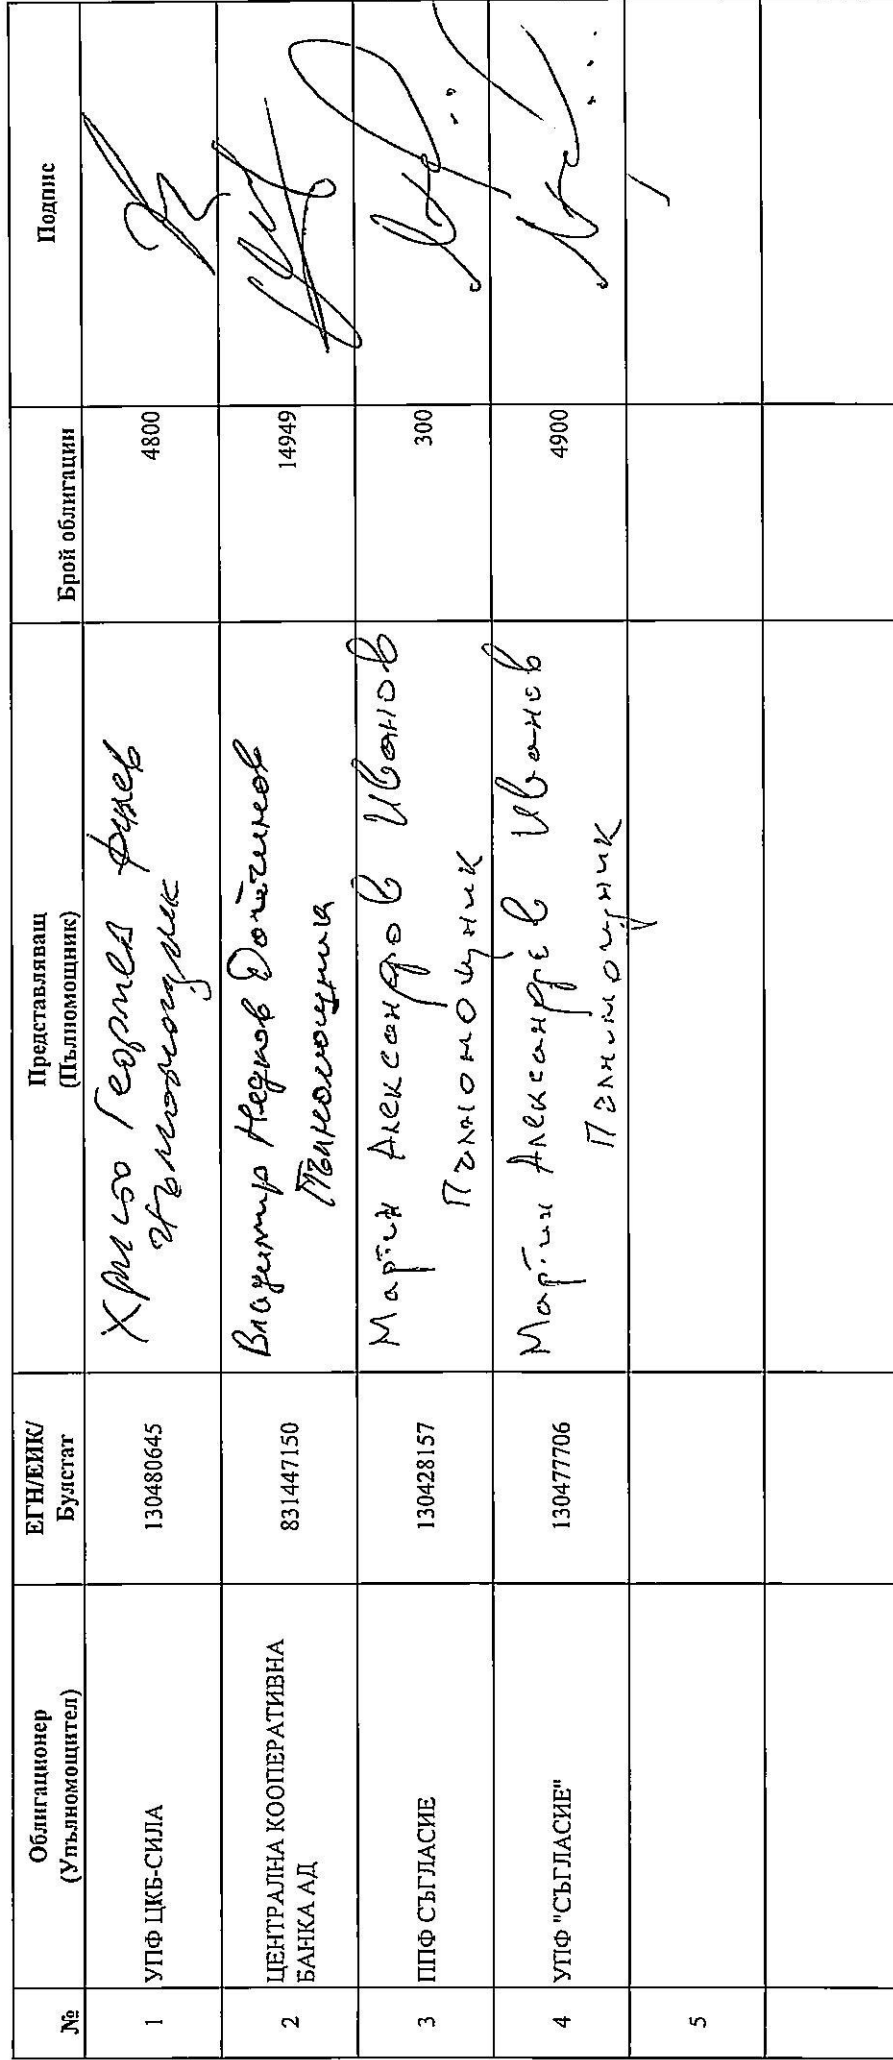 № Облигационер (Упълномощител) ЕГН/ЕИК/ Булстат Представляващ (Пълномощник) Брой облигации Подпис
1 УПФ ЦКБ-СИЛА 130480645 Христо Георгиев 4800
пълномощник
2 ЦЕНТРАЛНА КООПЕРАТИВНА 831447150 Владимир Недков Дойчинов 14949
БАНКА АД Пълномощник
3 ППФ СЪГЛАСИЕ 130428157 Мартин Александров Иванов 300
Пълномощник
4 УПФ "СЪГЛАСИЕ" 130477706 Мартин Александров Иванов 4900
Пълномощник
5